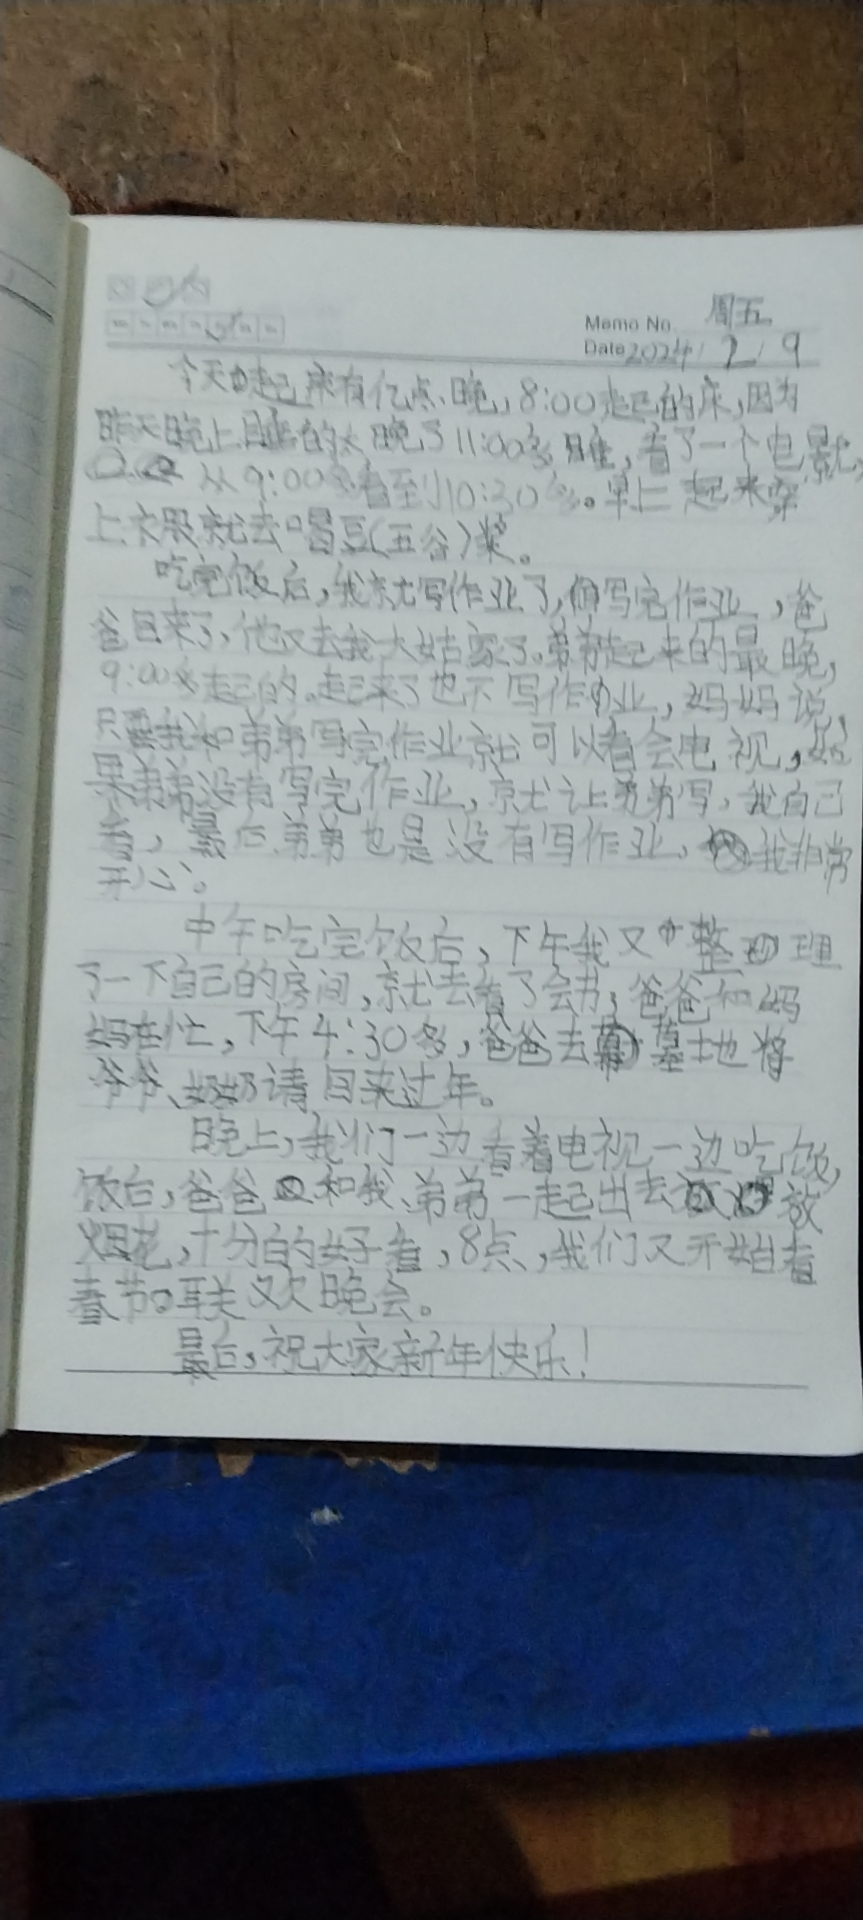 周五
Memo No.
Date 2024 / 2 / 9
今天起床有亿点晚,8:00起的床,因为
昨天晚上睡的太晚了11:00多睡,看了一个电影,
从9:00多看到10:30多。早上起来穿
上衣服就去喝豆(五谷)浆。
吃完饭后,我就写作业了,写完作业,爸
爸回来了,他又去我大姑家了。弟弟起来的最晚,
9:00多起的。起来了也不写作业,妈妈说,
只要我和弟弟写完作业就可以看会电视,如
果弟弟没有写完作业,就让弟弟写,我自己
看,最后弟弟也是没有写作业,我非常
开心。
中午吃完饭后,下午我又整理
了一下自己的房间,就去看了会书,爸爸和妈
妈在忙,下午4:30多,爸爸去墓地将
爷爷、奶奶请回来过年。
晚上,我们一边看着电视一边吃饭,
饭后,爸爸和我、弟弟一起出去放
烟花,十分的好看,8点,我们又开始看
春节联欢晚会。
最后,祝大家新年快乐!